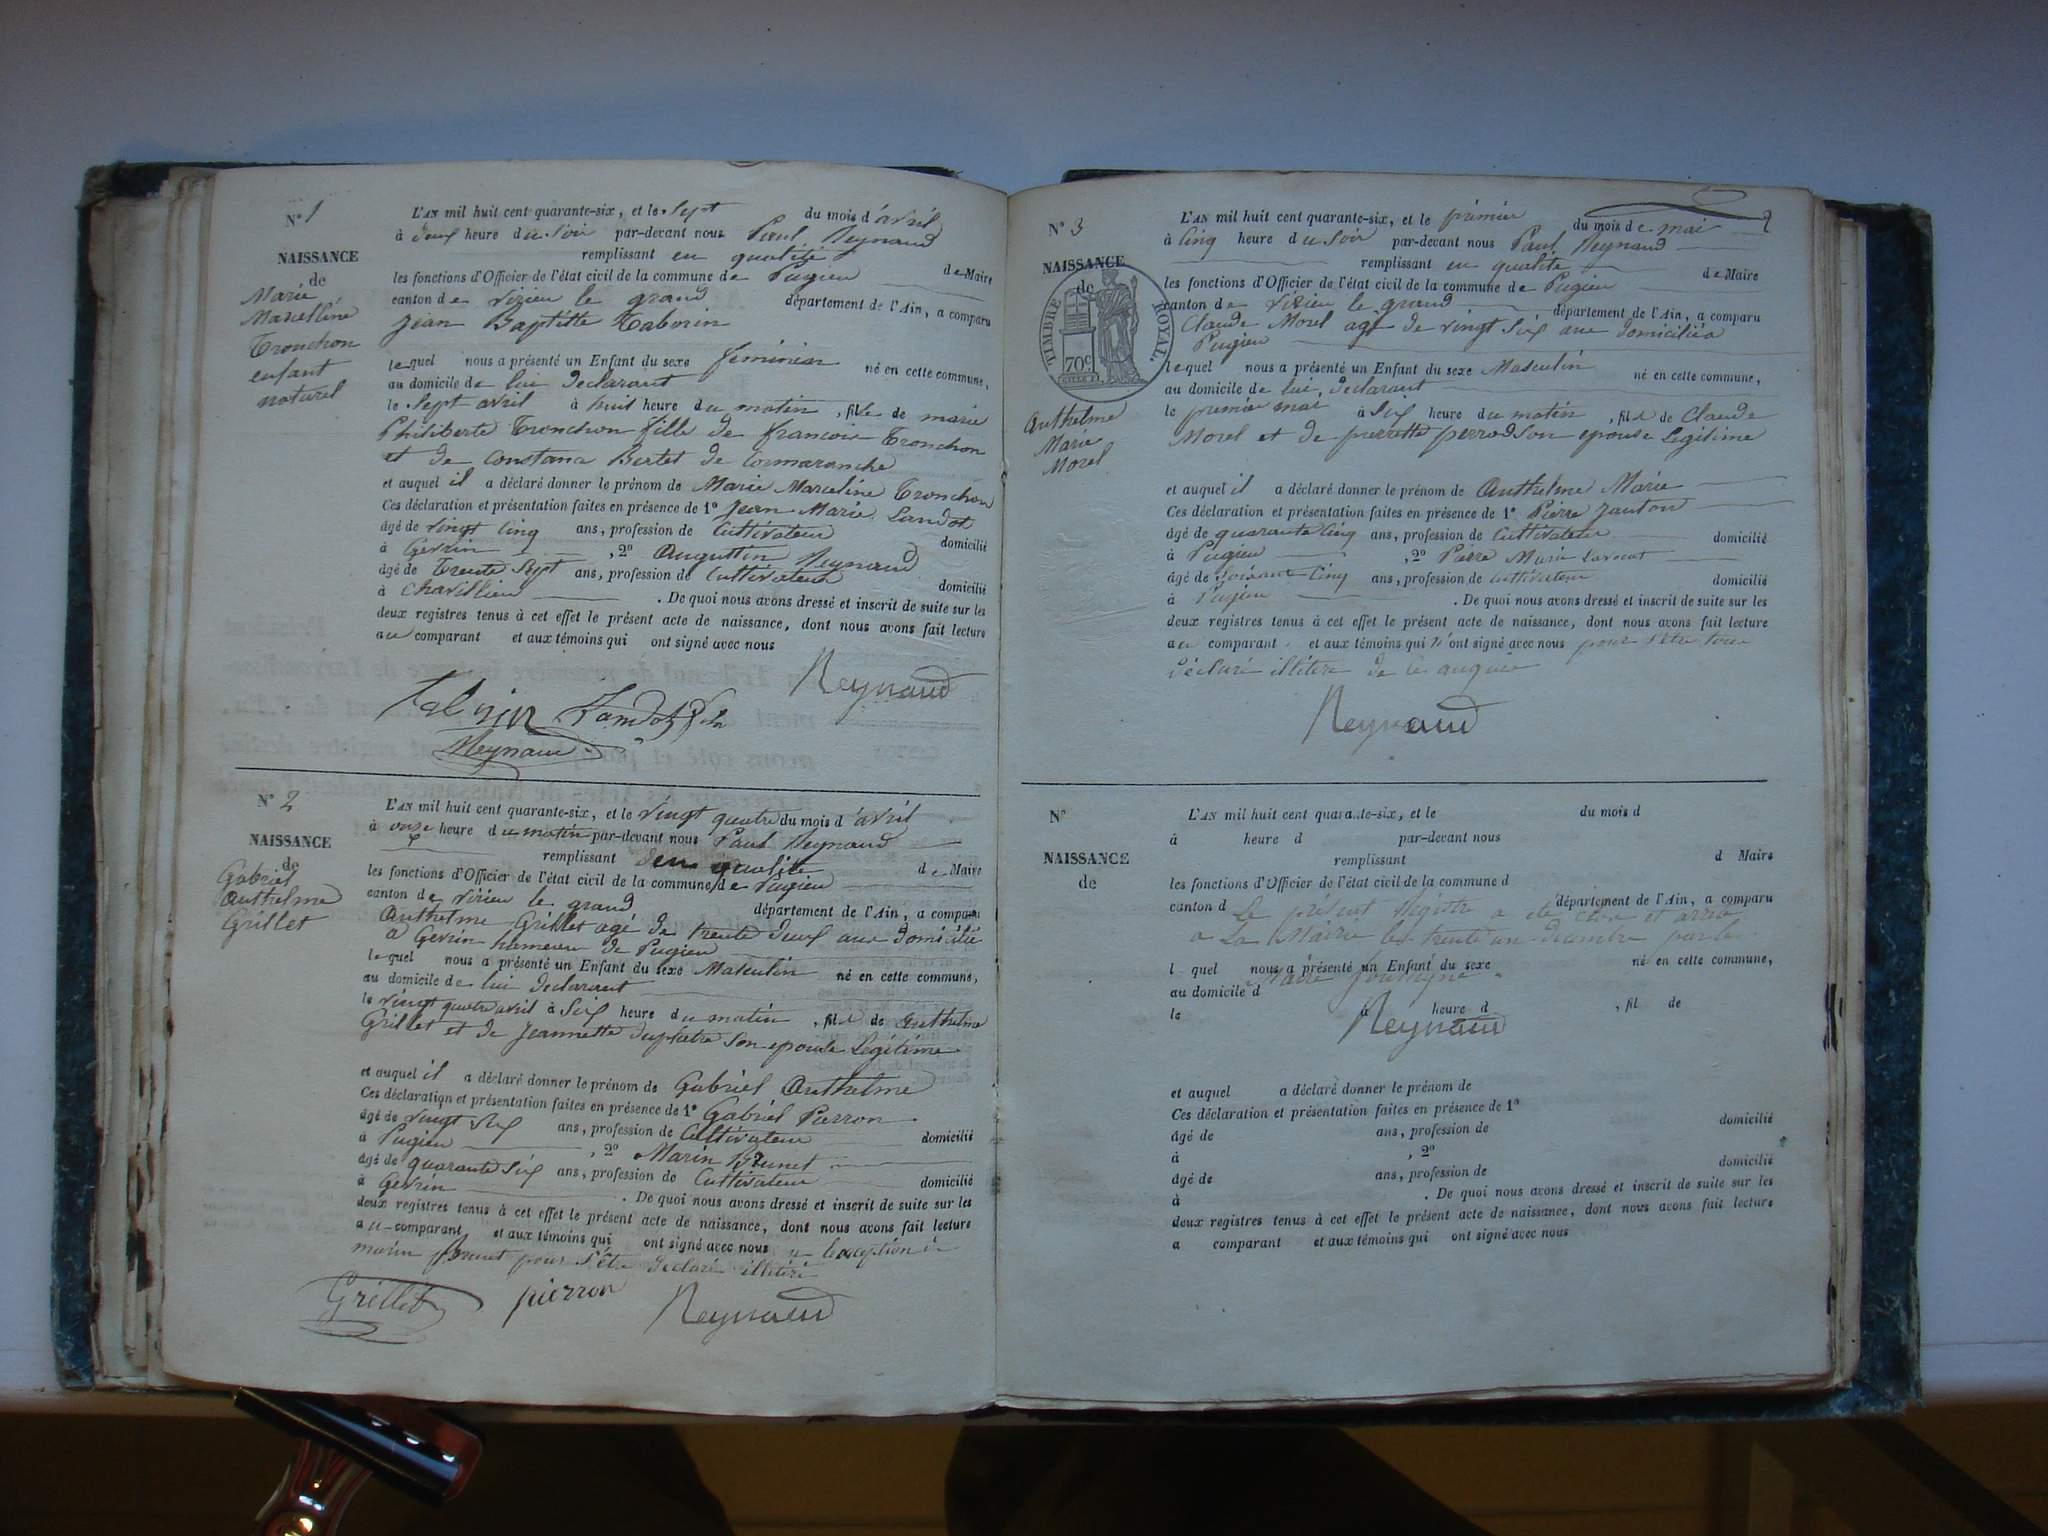 N° 1
NAISSANCE
de
Marie
Marcelline
Tronchon
enfant
naturel
L'AN mil huit cent quarante-six, et le Sept du mois d'avril
à deux heure du Soir par-devant nous Paul Reynaud
remplissant en qualité de Maire
les fonctions d'Officier de l'état civil de la commune de Pugieu
canton de Virieu le grand département de l'Ain, a comparu
Jean Baptiste Taborin
lequel nous a présenté un Enfant du sexe féminin né en cette commune,
au domicile de lui Declarant
le Sept avril à huit heure du matin, fille de marie
Philiberte Tronchon fille de francois Tronchon
et de Bertet de Cormaranche
et auquel il a déclaré donner le prénom de Marie Marceline Tronchon
Ces déclaration et présentation faites en présence de 1° Jean Marie Landot
âgé de vingt Cinq ans, profession de Cultivateur domicilié
à Gevrin, 2° Augustin Reynaud
âgé de Trente Sept ans, profession de Cultivateur domicilié
à Chavillieu. De quoi nous avons dressé et inscrit de suite sur les
deux registres tenus à cet effet le présent acte de naissance, dont nous avons fait lecture
au comparant et aux témoins qui ont signé avec nous
Reynaud
Reynaud
N° 2
NAISSANCE
de
Gabriel
Anthelme
Grillet
L'AN mil huit cent quarante-six, et le vingt quatre du mois d'avril
à onze heure du matin par-devant nous Paul Reynaud
remplissant en qualité de Maire
les fonctions d'Officier de l'état civil de la commune de Pugieu
canton de Virieu le grand département de l'Ain, a comparu
Anthelme Grillet agé de trente deux ans domicilié
à Gevrin hameau de Pugieu
lequel nous a présenté un Enfant du sexe Masculin né en cette commune,
au domicile de lui declarant
le vingt quatre avril à Six heure du matin, fils de Anthelme
Grillet et de Jeannette son epouse Legitime
et auquel il a déclaré donner le prénom de Gabriel Anthelme
Ces déclaration et présentation faites en présence de 1° Gabriel Pierron
âgé de vingt Six ans, profession de Cultivateur domicilié
à Pugieu, 2° Marin Brunet
âgé de quarante Six ans, profession de Cultivateur domicilié
à Gevrin. De quoi nous avons dressé et inscrit de suite sur les
deux registres tenus à cet effet le présent acte de naissance, dont nous avons fait lecture
au comparant et aux témoins qui ont signé avec nous a lexception de
marin Brunet pour s'être declaré illitéré
Grillet pierron Reynaud
2
N° 3
NAISSANCE
de
TIMBRE ROYAL.
70c
Anthelme
Marie
Morel
L'AN mil huit cent quarante-six, et le prémier du mois de mai
à Cinq heure du soir par-devant nous Paul Reynaud
remplissant en qualité de Maire
les fonctions d'Officier de l'état civil de la commune de Pugieu
canton de Virieu le grand département de l'Ain, a comparu
Claude Morel agé de vingt Six ans domicilié à
Pugieu
lequel nous a présenté un Enfant du sexe Masculin né en cette commune,
au domicile de lui declarant
le prémier mai à Six heure du matin, fils de Claude
Morel et de pierrette perrod son epouse Legitime
et auquel il a déclaré donner le prénom de Anthelme Marie
Ces déclaration et présentation faites en présence de 1° Pierre Janton
âgé de quarante Cinq ans, profession de Cultivateur domicilié
à Pugieu, 2° Pierre Marie
âgé de Soixante Cinq ans, profession de Cultivateur domicilié
à Pugieu. De quoi nous avons dressé et inscrit de suite sur les
deux registres tenus à cet effet le présent acte de naissance, dont nous avons fait lecture
au comparant et aux témoins qui n'ont signé avec nous pour s'être tous
déclaré illitéré de ce
Reynaud
N°
NAISSANCE
de
L'AN mil huit cent quarante-six, et le du mois d
à heure d par-devant nous
remplissant d Maire
les fonctions d'Officier de l'état civil de la commune d
canton d département de l'Ain, a comparu
Le présent Registre a été clos et
a La Mairie le trente un decembre par le
l quel nous a présenté un Enfant du sexe né en cette commune,
Maire soussigné
au domicile d
le à heure d, fil de
Reynaud
et auquel a déclaré donner le prénom de
Ces déclaration et présentation faites en présence de 1°
âgé de ans, profession de domicilié
à, 2°
âgé de ans, profession de domicilié
à. De quoi nous avons dressé et inscrit de suite sur les
deux registres tenus à cet effet le présent acte de naissance, dont nous avons fait lecture
a comparant et aux témoins qui ont signé avec nous